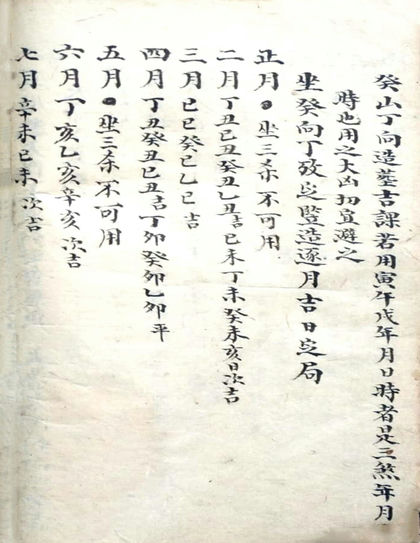 癸山丁向造塟吉課若用寅午戌年月日時者是三煞年月
時也用之大凶切宜避之
坐癸向丁改定豎造逐月吉日定局
正月●坐三杀不可用
二月丁丑己丑癸丑乙丑吉己未丁未癸未亥日次吉
三月己巳癸巳乙巳吉
四月丁丑癸丑己丑吉丁卯癸卯乙卯平
五月●坐三杀不可用
六月丁亥乙亥辛亥次吉
七月辛未己未次吉